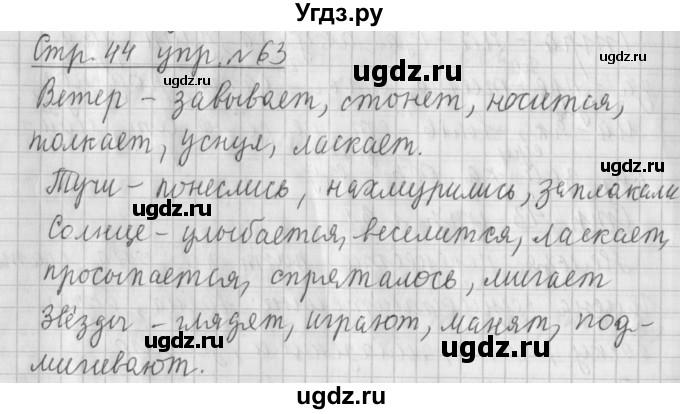 Угдз.ру
Стр. 44 упр. №63
Ветер – завывает, стонет, носится,
толкает, уснул, ласкает.
Тучи – понеслись, нахмурились, заплакали
Солнце – улыбается, веселится, ласкает,
просыпается, спряталось, мигает
Звёзды – глядят, играют, манят, под-
мигивают.
ugdz.ru
ugdz.ru
ugdz.ru
ugdz.ru
ugdz.ru
ugdz.ru
ugdz.ru
ugdz.ru
ugdz.ru
ugdz.ru
ugdz.ru